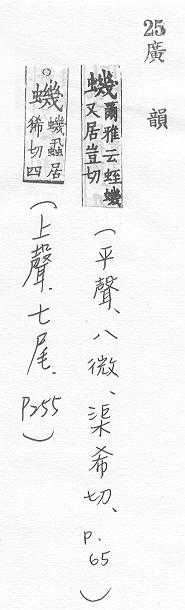 25廣韻
蟣爾雅云蛭蟣
又居豈切
(平聲、八微、渠希切、p.65)
○蟣蟣蝨居
稀切四
(上聲、七尾、P255)